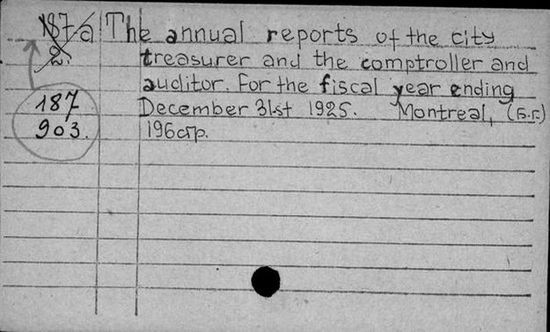 187a The annual reports of the city
2. treasurer and the comptroller and
auditor. For the fiscal year ending
187 December 31st 1925. Montreal, (б.г.)
903. 196 стр.